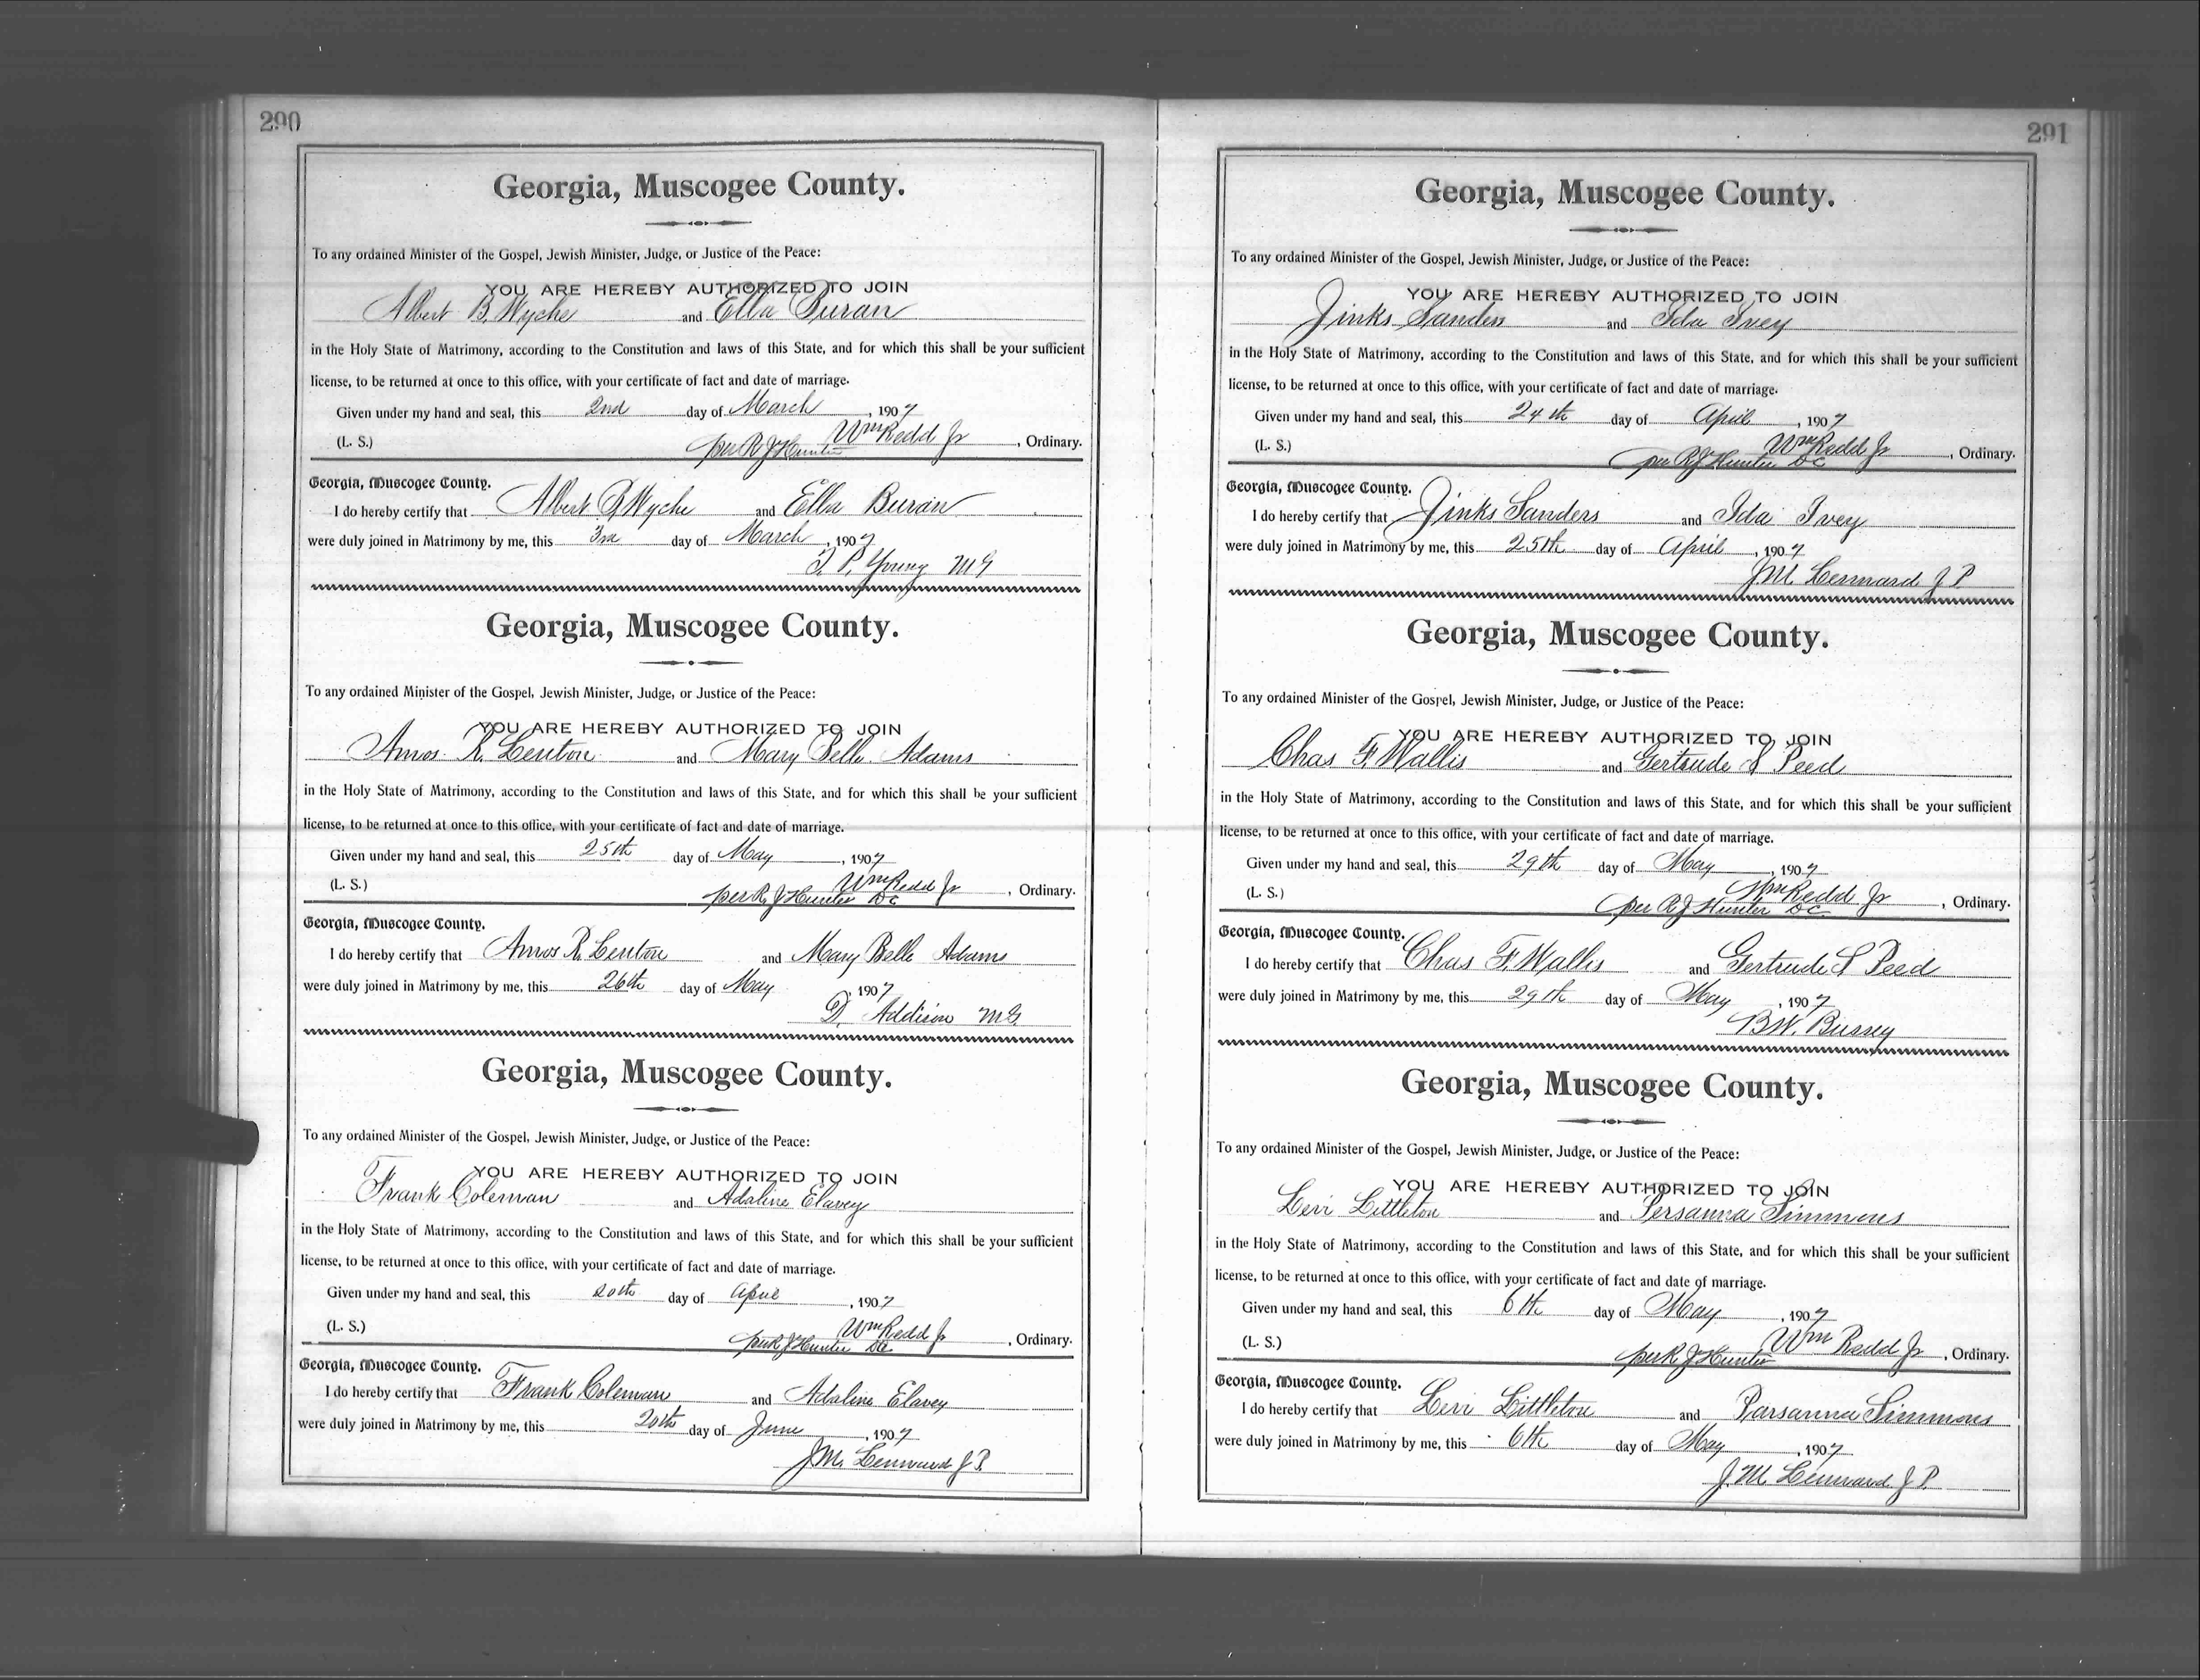 290
Georgia, Muscogee County.
To any ordained Minister of the Gospel, Jewish Minister, Judge, or Justice of the Peace:
YOU ARE HEREBY AUTHORIZED TO JOIN
Albert B. Wyche and Ella Buran
in the Holy State of Matrimony, according to the Constitution and laws of this State, and for which this shall be your sufficient
license, to be returned at once to this office, with your certificate of fact and date of marriage.
Given under my hand and seal, this 2nd day of March, 1907
(L. S.) Wm Redd Jr, Ordinary.
per R J Hunter
Georgia, Muscogee County.
I do hereby certify that Albert B Wyche and Ella Buran
were duly joined in Matrimony by me, this 3rd day of March, 1907
P. Young MG
Georgia, Muscogee County.
To any ordained Minister of the Gospel, Jewish Minister, Judge, or Justice of the Peace:
YOU ARE HEREBY AUTHORIZED TO JOIN
Amos R. Lenton and Mary Belle Adams
in the Holy State of Matrimony, according to the Constitution and laws of this State, and for which this shall be your sufficient
license, to be returned at once to this office, with your certificate of fact and date of marriage.
Given under my hand and seal, this 25th day of May, 1907
(L. S.) Wm Redd Jr, Ordinary.
per R. J Hunter DC
Georgia, Muscogee County.
I do hereby certify that Amos R. Lenton and Mary Belle Adams
were duly joined in Matrimony by me, this 26th day of May, 1907
D. Addison MG.
Georgia, Muscogee County.
To any ordained Minister of the Gospel, Jewish Minister, Judge, or Justice of the Peace:
YOU ARE HEREBY AUTHORIZED TO JOIN
Frank Coleman and Adaline Elavey
in the Holy State of Matrimony, according to the Constitution and laws of this State, and for which this shall be your sufficient
license, to be returned at once to this office, with your certificate of fact and date of marriage.
Given under my hand and seal, this 20th day of April, 1907
(L. S.) Wm Redd Jr, Ordinary.
per R J Hunter DC
Georgia, Muscogee County.
I do hereby certify that Frank Coleman and Adaline Elavey
were duly joined in Matrimony by me, this 20th day of June, 1907
J. M. Lennard J P.
291
Georgia, Muscogee County.
To any ordained Minister of the Gospel, Jewish Minister, Judge, or Justice of the Peace:
YOU ARE HEREBY AUTHORIZED TO JOIN
Jinks Sanders and Ida Ivey
in the Holy State of Matrimony, according to the Constitution and laws of this State, and for which this shall be your sufficient
license, to be returned at once to this office, with your certificate of fact and date of marriage.
Given under my hand and seal, this 24th day of April, 1907
(L. S.) Wm Redd Jr, Ordinary.
per R J Hunter DC
Georgia, Muscogee County.
I do hereby certify that Jinks Sanders and Ida Ivey
were duly joined in Matrimony by me, this 25th day of April, 1907
J M Lennard J P
Georgia, Muscogee County.
To any ordained Minister of the Gospel, Jewish Minister, Judge, or Justice of the Peace:
YOU ARE HEREBY AUTHORIZED TO JOIN
Chas F Wallis and Gertrude S Peed
in the Holy State of Matrimony, according to the Constitution and laws of this State, and for which this shall be your sufficient
license, to be returned at once to this office, with your certificate of fact and date of marriage.
Given under my hand and seal, this 29th day of May, 1907
(L. S.) Wm Redd Jr, Ordinary.
per R J Hunter DC
Georgia, Muscogee County.
I do hereby certify that Chas F. Wallis and Gertrude S Peed
were duly joined in Matrimony by me, this 29th day of May, 1907
B W. Bussey
Georgia, Muscogee County.
To any ordained Minister of the Gospel, Jewish Minister, Judge, or Justice of the Peace:
YOU ARE HEREBY AUTHORIZED TO JOIN
Levi Littleton and Persanna Simmons
in the Holy State of Matrimony, according to the Constitution and laws of this State, and for which this shall be your sufficient
license, to be returned at once to this office, with your certificate of fact and date of marriage.
Given under my hand and seal, this 6th day of May, 1907
(L. S.) Wm Redd Jr, Ordinary.
per R J Hunter
Georgia, Muscogee County.
I do hereby certify that Levi Littleton and Parsanna Simmons
were duly joined in Matrimony by me, this 6th day of May, 1907
J. M. Lennard J P.